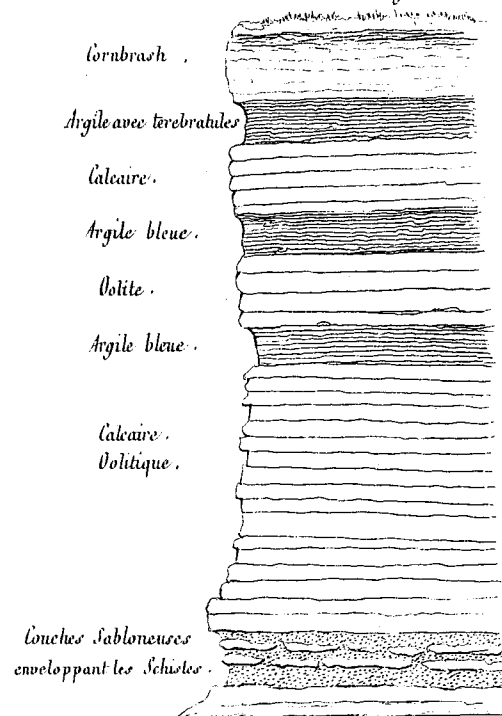 Cornbrash .
Argile avec térébratules
Calcaire .
Argile bleue .
Oolite .
Argile bleue .
Calcaire .
Oolitique .
Couches Sabloneuses
enveloppant les Schistes .